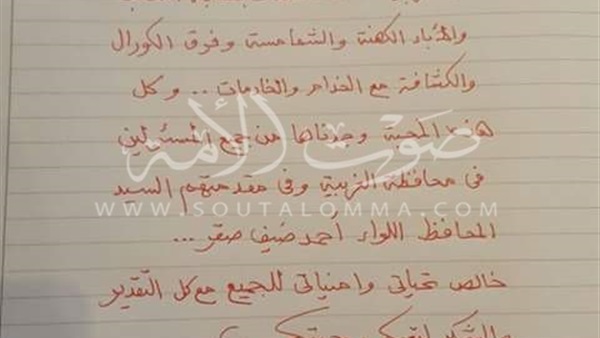 والآباء الكهنة والشمامسة وفوق الكورال
والكشافة مع الخدام والخادمات .. وكل
هذه المحبة وجدناها من جميع المسئولين
في محافظة الغربية وفي مقدمتهم السيد
المحافظ اللواء أحمد ضيف صقر ...
خالص تحياتي وامنياتي للجميع مع كل التقدير
صوت الأمة
WWW.SOUTALOMMA.COM